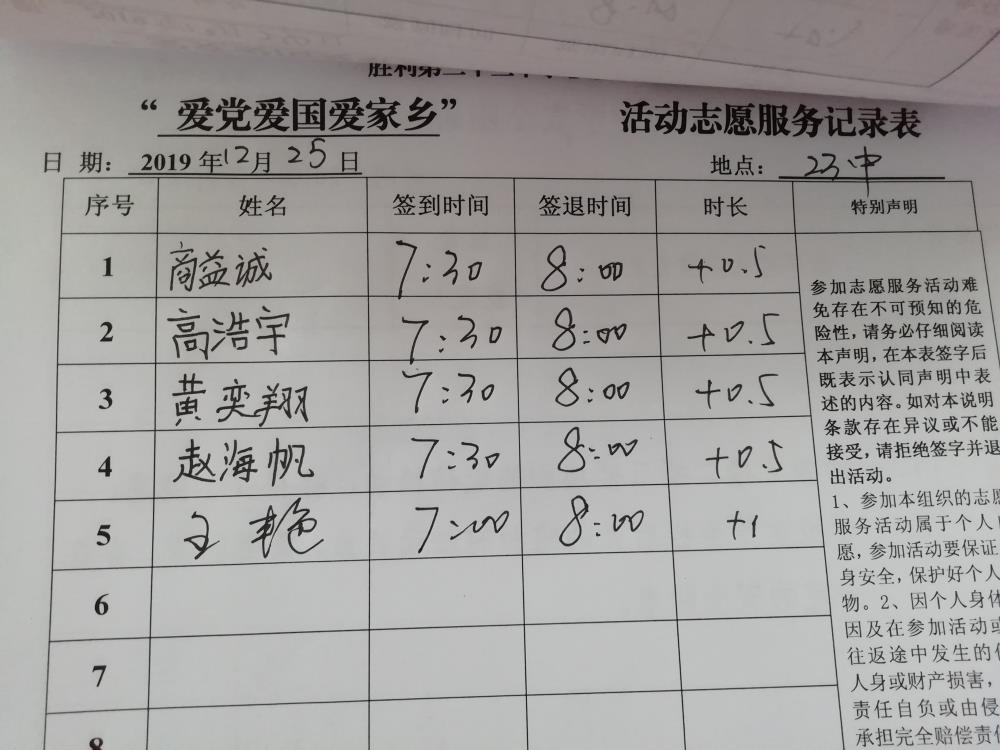 “爱党爱国爱家乡” 活动志愿服务记录表
日 期： 2019 年12月 25 日 地点： 23中
序号 姓名 签到时间 签退时间 时长 特别声明
1 商益诚 7:30 8:00 +0.5
2 高浩宇 7:30 8:00 +0.5
3 黄奕翔 7:30 8:00 +0.5
4 赵海帆 7:30 8:00 +0.5
5 王艳 7:00 8:00 +1
6
7
8
参加志愿服务活动难
免存在不可预知的危
险性，请务必仔细阅读
本声明，在本表签字后
既表示认同声明中表
述的内容。如对本说明
条款存在异议或不能
接受，请拒绝签字并退
出活动。
1、参加本组织的志愿
服务活动属于个人
愿，参加活动要保证
身安全，保护好个人
物。2、因个人身体
因及在参加活动或
往返途中发生的
人身或财产损害，
责任自负或由侵
承担完全赔偿责任